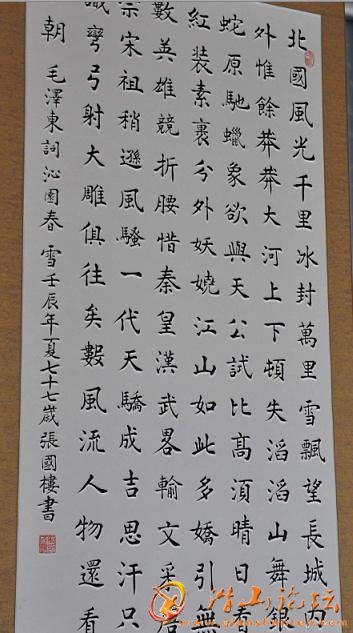 北國風光千里冰封萬里雪飄望長城内
外惟餘莽莽大河上下頓失滔滔山舞銀
蛇原馳蠟象欲與天公試比高須晴日看
紅装素裹分外妖嬈江山如此多嬌引無
數英雄競折腰惜秦皇漢武畧輸文采唐
宗宋祖稍遜風騷一代天驕成吉思汗只
識彎弓射大雕俱往矣數風流人物還看
朝 毛澤東詞沁園春雪壬辰年夏七十七歲張國樓書
潜山论坛